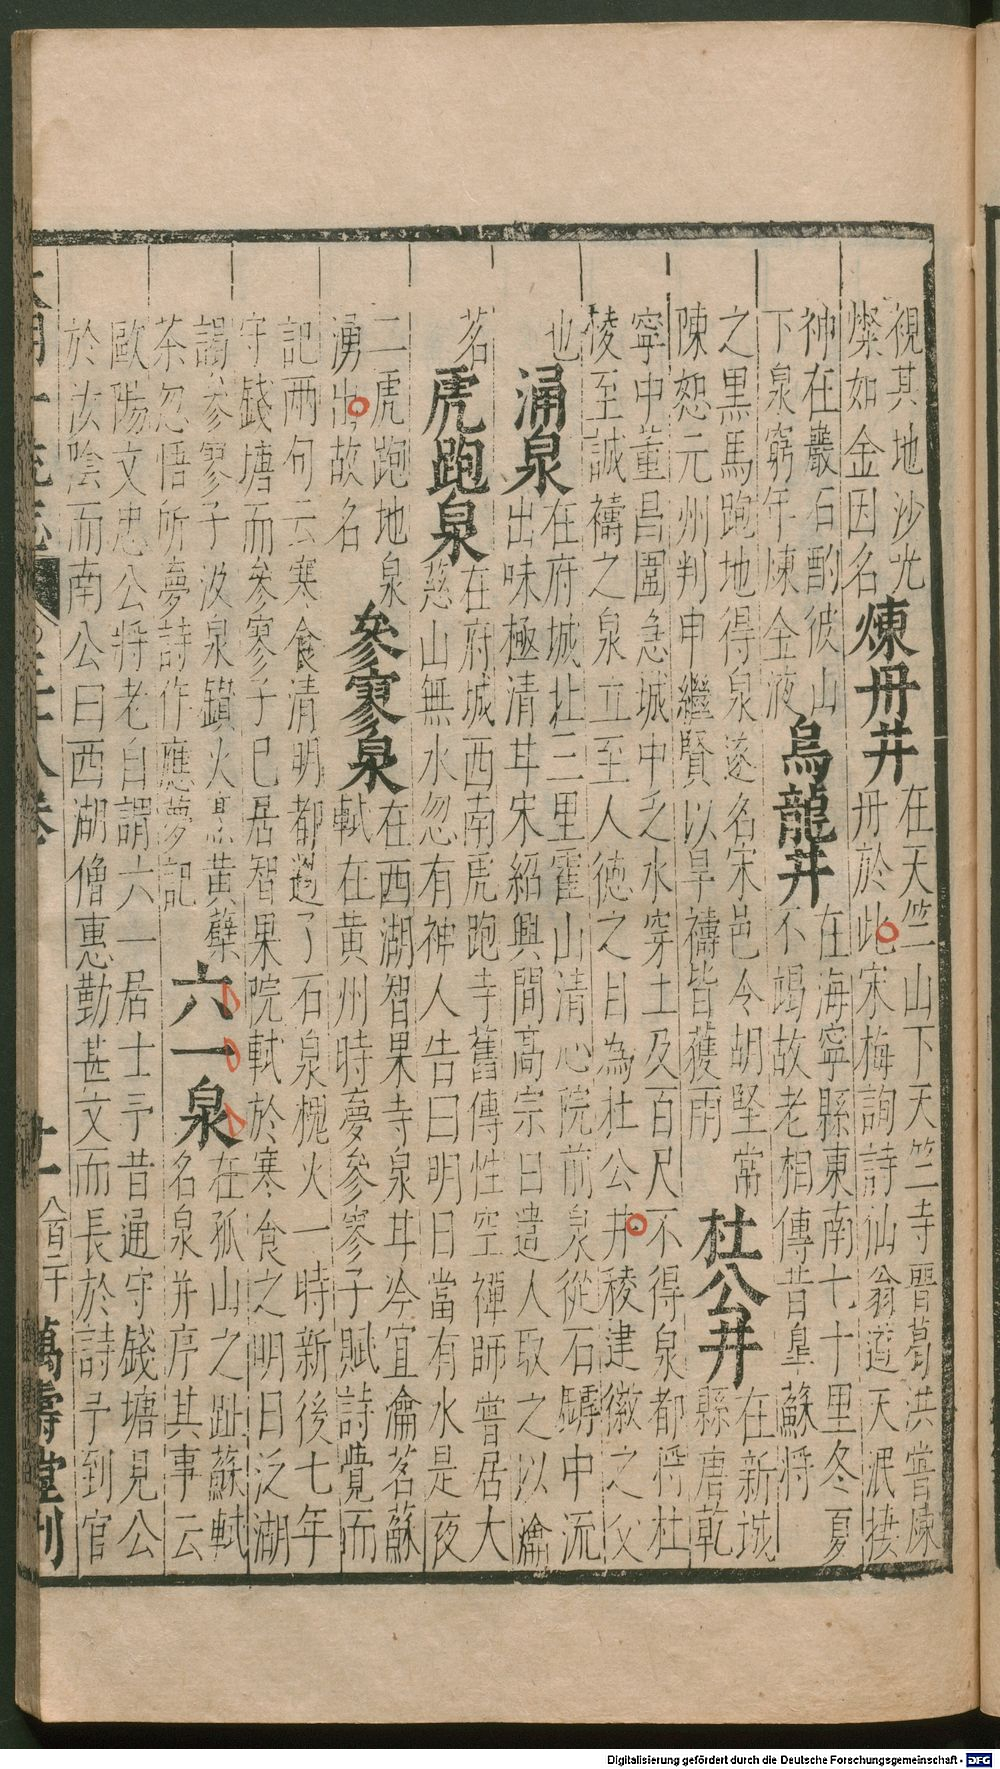 視其地沙光
燦如金因名
煉丹井
在天竺山下天竺寺晉葛洪嘗煉
丹於此宋梅詢詩仙翁遊天泯棲
神在巖石酌彼山
下泉窮年煉金液
烏龍井
在海寧縣東南七十里冬夏
不竭故老相傳昔皇蘇將
之黑馬跑地得泉遂名宋邑令胡堅常
陳恕元州判申繼賢以旱禱皆獲雨
杜公井
在新城
縣唐乾
寧中董昌圍急城中乏水穿土及百尺不得泉都將杜
稜至誠禱之泉立至人德之目為杜公井稜建徽之父
也
涌泉
在府城北三里霍山清心院前泉從石罅中流
出味極清甘宋紹興間高宗日遣人取之以瀹
茗
虎跑泉
在府城西南虎跑寺舊傳性空禪師嘗居大
慈山無水忽有神人告曰明日當有水是夜
二虎跑地泉
湧出故名
參寥泉
在西湖智果寺泉甘冷宜瀹茗蘇
軾在黃州時夢參寥子賦詩覺而
記兩句云寒食清明都過了石泉槐火一時新後七年
守錢塘而參寥子已居智果院軾於寒食之明日泛湖
謁參寥子汲泉鑽火烹黃蘗
茶忽悟所夢詩作應夢記
六一泉
在孤山之趾蘇軾
名泉并序其事云
歐陽文忠公將老自謂六一居士予昔通守錢塘見公
於汝陰而南公曰西湖僧惠勤甚文而長於詩予到官
大明一統志 之三十八卷 廿一 八百二十 萬壽堂刊
Digitalisierung gefördert durch die Deutsche Forschungsgemeinschaft - DFG